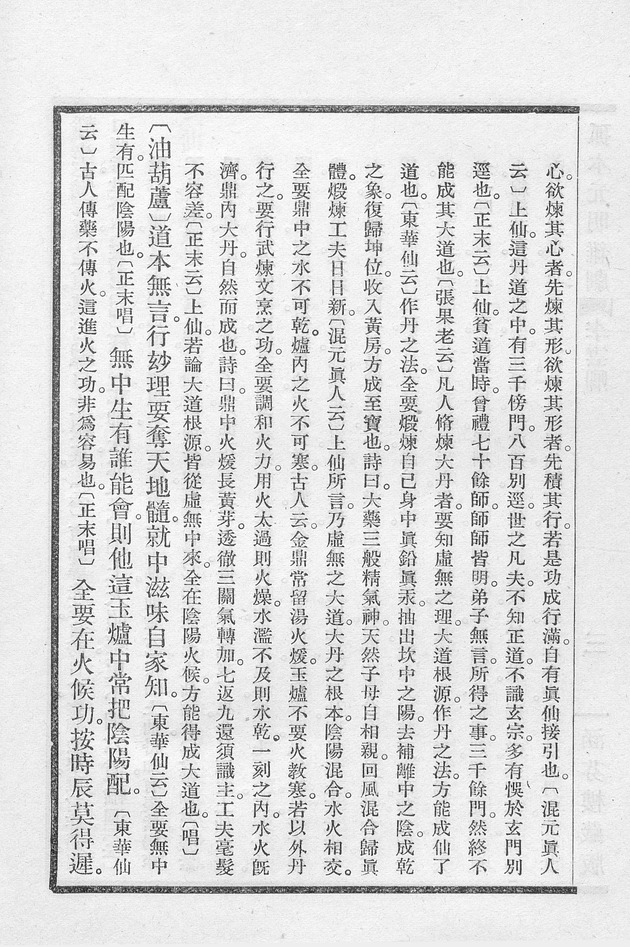 心。欲煉其心者。先煉其形。欲煉其形者。先積其行。若是功成行滿。自有眞仙接引也。〔混元眞人
云〕上仙。這丹道之中。有三千傍門。八百別逕。世之凡夫。不知正道。不識玄宗。多有悞於玄門別
逕也。〔正末云〕上仙。貧道當時曾禮七十餘師。師師皆明。弟子無言。所得之事。三千餘門。然終不
能成其大道也。〔張果老云〕凡人脩煉大丹者。要知虛無之理。大道根源。作丹之法。方能成仙了
道也。〔東華仙云〕作丹之法。全要煅煉自己身中眞鉛眞汞。抽出坎中之陽。去補離中之陰。成乾
之象。復歸坤位。收入黃房。方成至寶也。詩曰。大藥三般精氣神。天然子母自相親。回風混合歸眞
體。煅煉工夫日日新。〔混元眞人云〕上仙所言。乃虛無之大道。大丹之根本。陰陽混合。水火相交。
全要鼎中之水不可乾。爐內之火不可寒。古人云。金鼎常留湯火煖。玉爐不要火教寒。若以外丹
行之。要行武煉文烹之功。全要調和火力。用火太過則火燥。水濫不及則水乾。一刻之內。水火旣
濟。鼎內大丹自然而成也。詩曰。鼎中火煖長黃芽。透徹三關氣轉加。七返九還須識主。工夫毫髮
不容差。〔正末云〕上仙。若論大道根源。皆從虛無中來。全在陰陽火候。方能得成大道也。〔唱〕
〔油葫蘆〕道本無言。行玅理。要奪天地髓。就中滋味自家知。〔東華仙云〕全要無中
生有。匹配陰陽也。〔正末唱〕無中生有誰能會。則他這玉爐中常把陰陽配。〔東華仙
云〕古人傳藥不傳火。這進火之功。非爲容易也。〔正末唱〕全要在火候功。按時辰莫得遲。